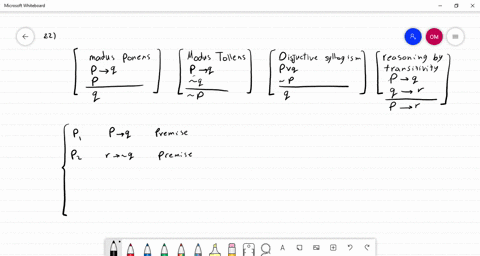 Microsoft Whiteboard
22)
OM
modus Ponens
P→q
P
q
Modus Tollens
P→q
~q
~P
Disjuctive syllogism
Pvq
~P
q
reasoning by
transitivity
P→q
q→r
P→r
P1 P→q Premise
P2 r→~q premise
A